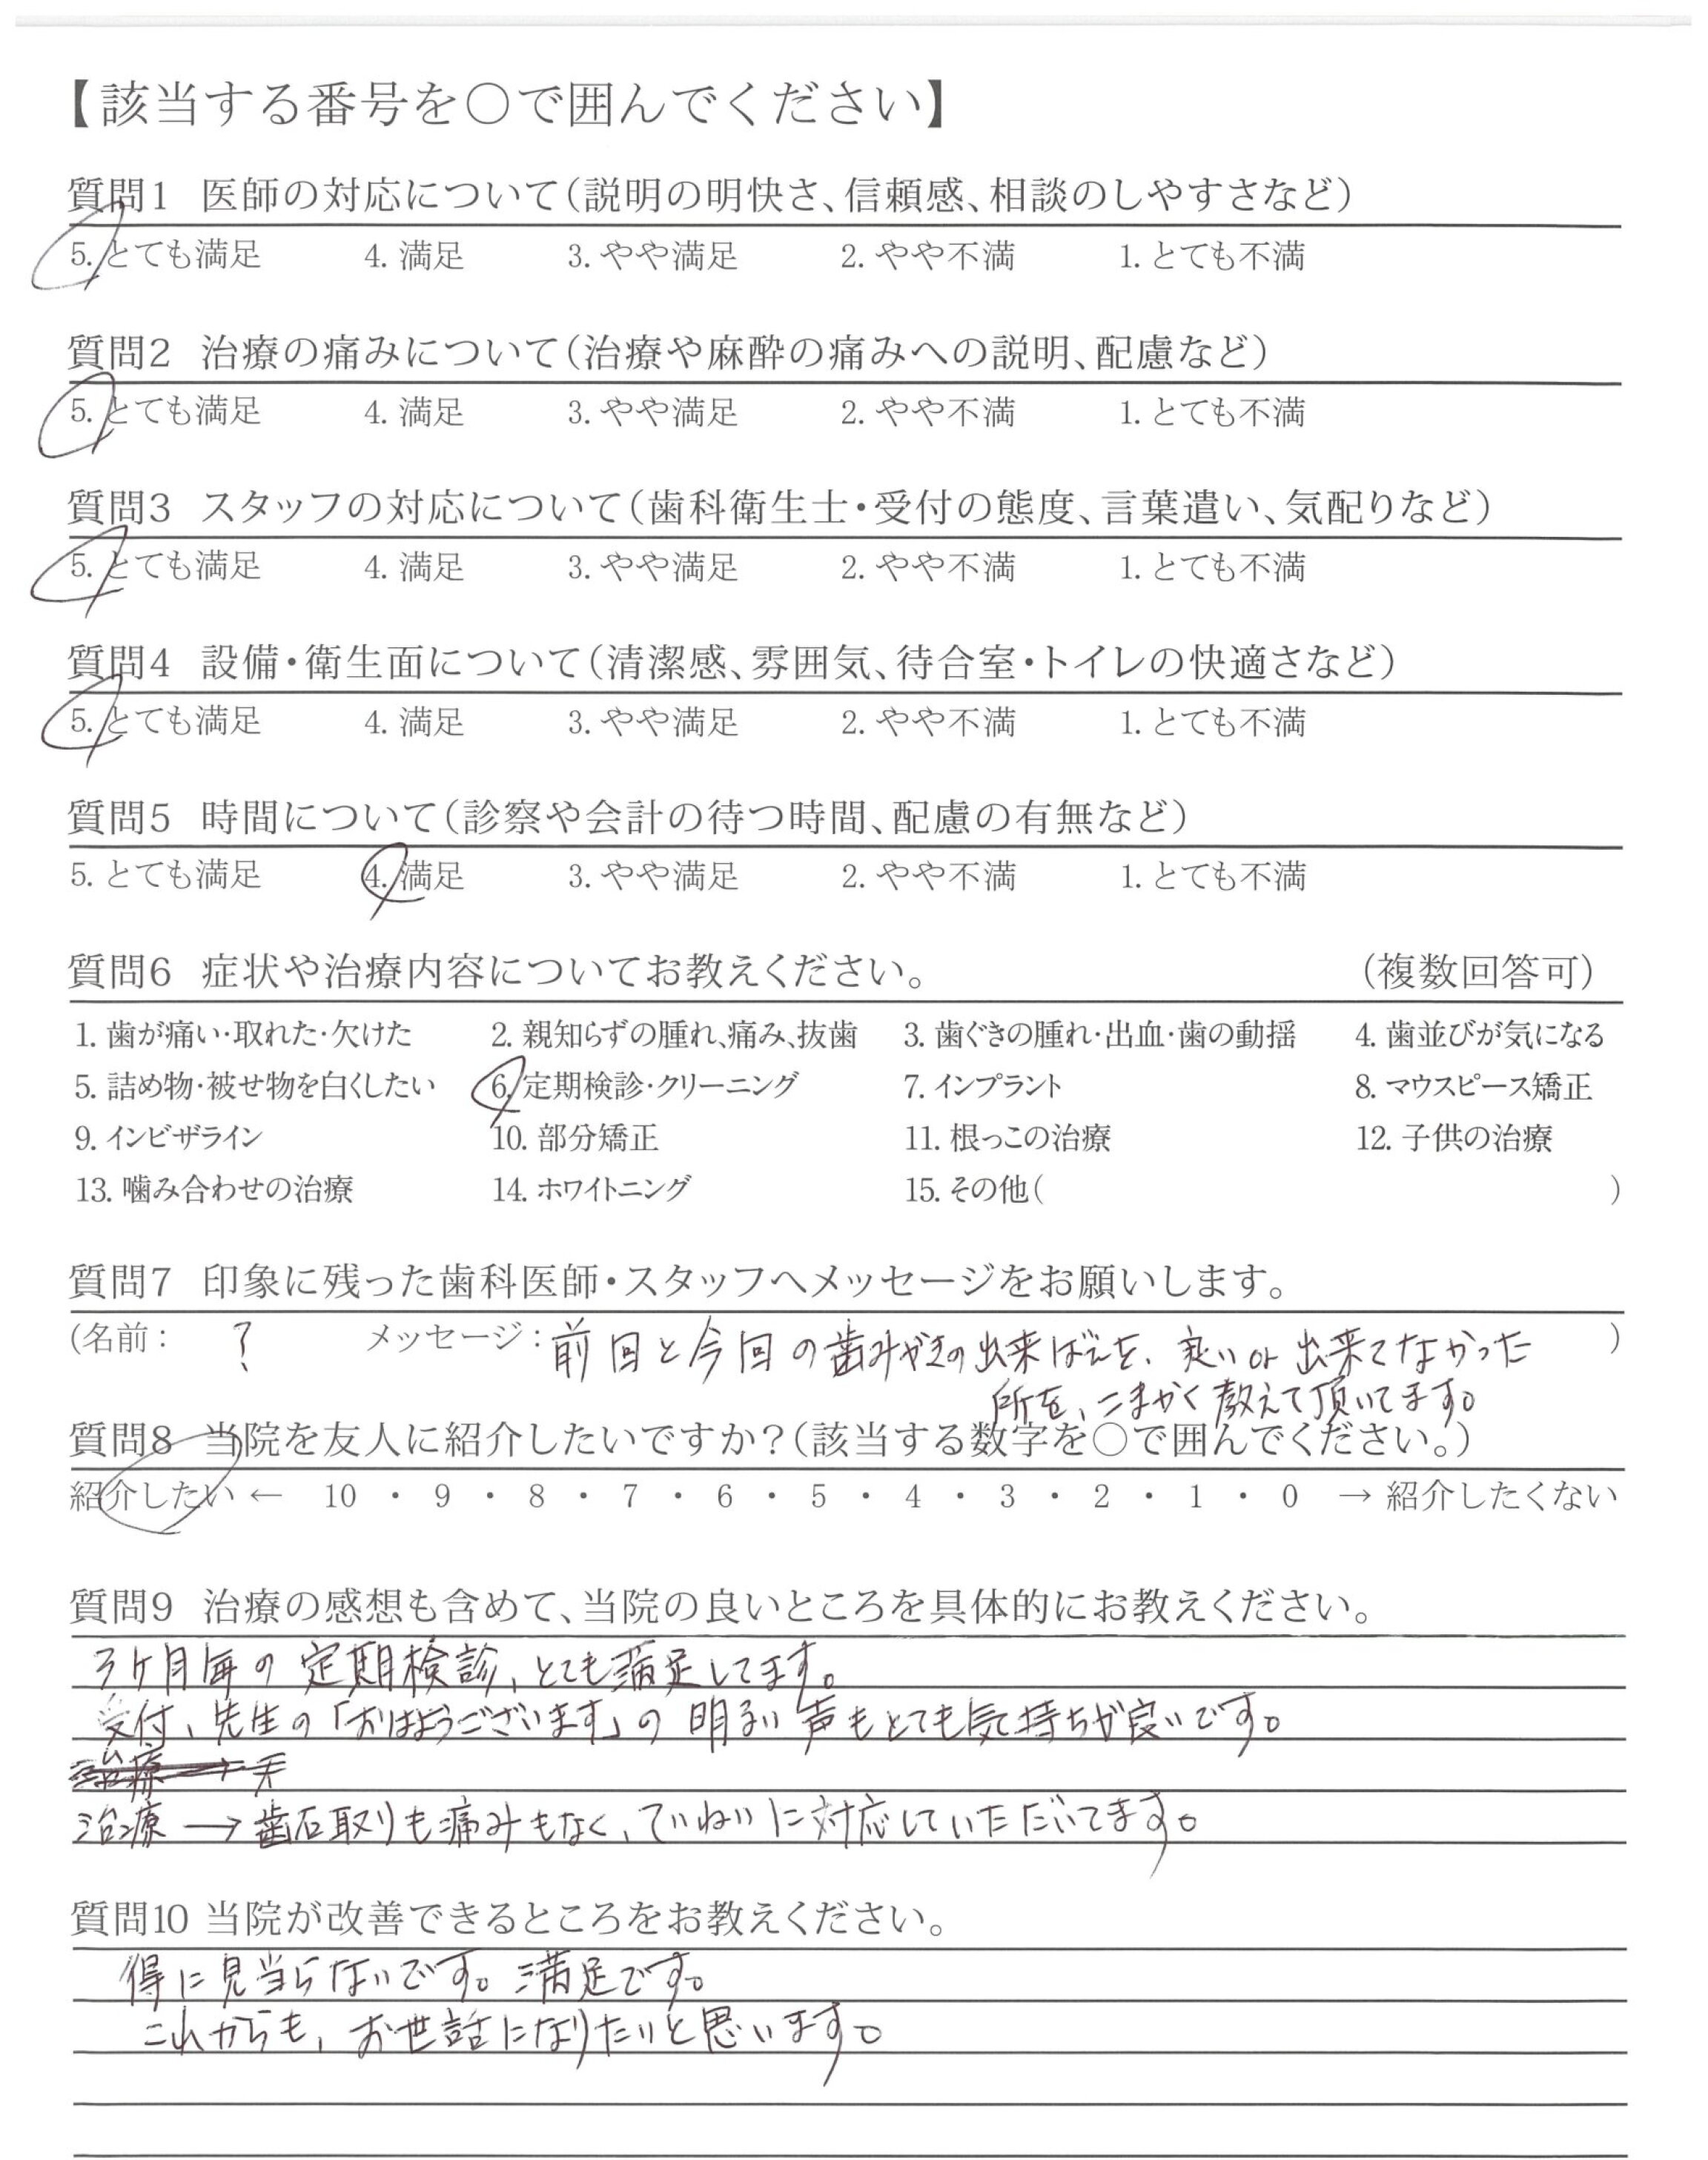 【該当する番号を○で囲んでください】
質問1 医師の対応について(説明の明快さ、信頼感、相談のしやすさなど)
5. とても満足 4. 満足 3. やや満足 2. やや不満 1. とても不満
質問2 治療の痛みについて(治療や麻酔の痛みへの説明、配慮など)
5. とても満足 4. 満足 3. やや満足 2. やや不満 1. とても不満
質問3 スタッフの対応について(歯科衛生士・受付の態度、言葉遣い、気配りなど)
5. とても満足 4. 満足 3. やや満足 2. やや不満 1. とても不満
質問4 設備・衛生面について(清潔感、雰囲気、待合室・トイレの快適さなど)
5. とても満足 4. 満足 3. やや満足 2. やや不満 1. とても不満
質問5 時間について(診察や会計の待つ時間、配慮の有無など)
5. とても満足 4. 満足 3. やや満足 2. やや不満 1. とても不満
質問6 症状や治療内容についてお教えください。 (複数回答可)
1. 歯が痛い・取れた・欠けた 2. 親知らずの腫れ、痛み、抜歯 3. 歯ぐきの腫れ・出血・歯の動揺 4. 歯並びが気になる
5. 詰め物・被せ物を白くしたい 6. 定期検診・クリーニング 7. インプラント 8. マウスピース矯正
9. インビザライン 10. 部分矯正 11. 根っこの治療 12. 子供の治療
13. 噛み合わせの治療 14. ホワイトニング 15. その他( )
質問7 印象に残った歯科医師・スタッフへメッセージをお願いします。
(名前: ? メッセージ: 前回と今回の歯みがきの出来ばえを、良い or 出来てなかった )
所を、こまかく教えて頂いてます。
質問8 当院を友人に紹介したいですか?(該当する数字を○で囲んでください。)
紹介したい ← 10 ・ 9 ・ 8 ・ 7 ・ 6 ・ 5 ・ 4 ・ 3 ・ 2 ・ 1 ・ 0 → 紹介したくない
質問9 治療の感想も含めて、当院の良いところを具体的にお教えください。
3ケ月毎の定期検診、とても満足してます。
受付、先生の「おはようございます」の明るい声もとても気持ちが良いです。
治療→
治療→歯石取りも痛みもなく、ていねいに対応していただいてます。
質問10 当院が改善できるところをお教えください。
得に見当らないです。満足です。
これからも、お世話になりたいと思います。